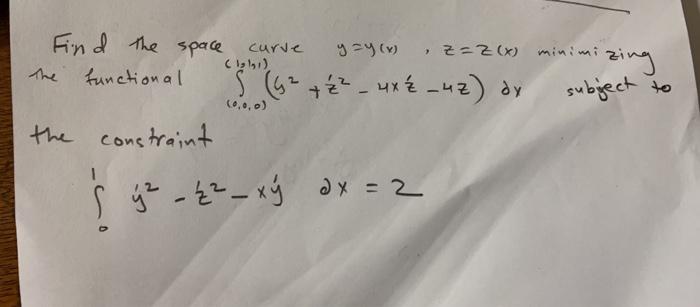 Find the space curve y=y(x) , z=z(x) minimizing
the functional ∫_{(0,0,0)}^{(1,1,1)} (ẏ² + ż² - 4xż - 4z) dx subject to
the constraint
∫_0^1 ẏ² - ż² - xẏ dx = 2